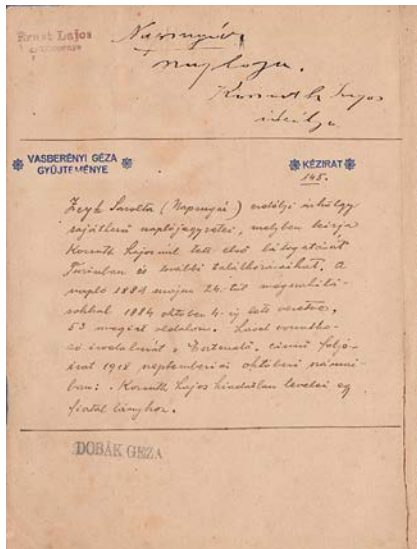 Ernst Lajos
gyűjteménye
Napsugár
naplója.
Kossuth Lajos
ideálja
VASBERÉNYI GÉZA
GYÜJTEMÉNYE
KÉZIRAT
145.
Zeyk Sarolta (Napsugár) erdélyi úrhölgy
sajátkezű naplójegyzetei, melyben leirja
Kossuth Lajosnál tett első látogatását
Turinban és további találkozásaikat. A
napló 1884 május 24-től megszakitá-
sokkal 1884 október 4-ig lett vezetve,
53 negéd oldalon. Lásd vonatko-
zó irodalmát a Esztendő. című folyó-
irat 1918 szeptemberi és októberi számai-
ban: Kossuth Lajos kiadatlan levelei egy
fiatal lányhoz.
DOBÁK GÉZA